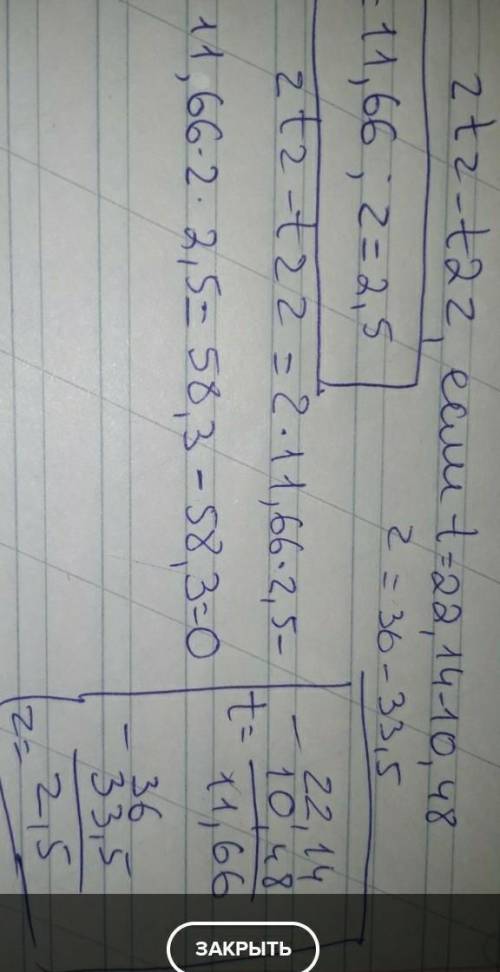 2tz-t2z, если t=22,14-10,48
z=36-33,5
=11,66; z=2,5
2tz-t2z=2·11,66·2,5-
11,66·2·2,5=58,3-58,3=0
- 22,14
10,48
t= 11,66
- 36
33,5
z= 2,5
ЗАКРЫТЬ